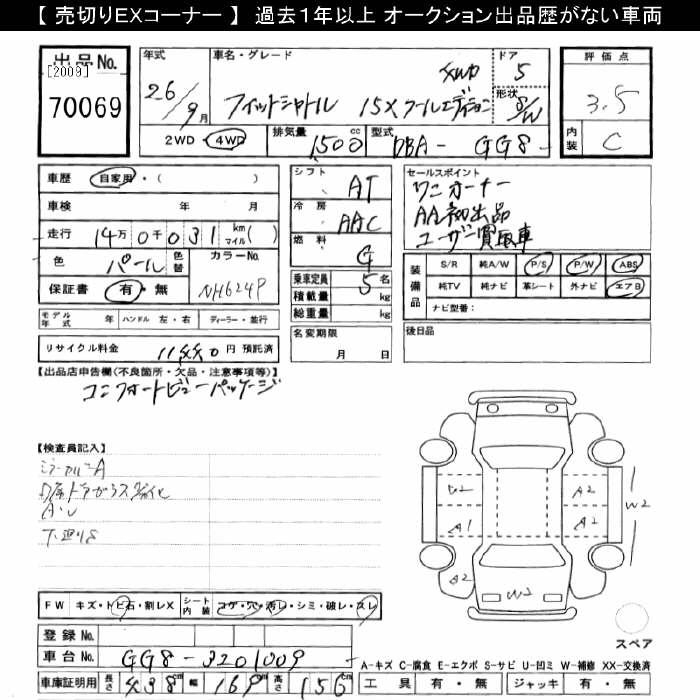 【 売切りEXコーナー 】 過去1年以上 オークション出品歴がない車両
出品No.
[2009]
70069
年式
26/9月
車名・グレード
フィットシャトル 15X クールエディション
4WD
ドア
5
形状
S/W
2WD ・ 4WD
排気量 1500 cc
型式 DBA- GG8-
評価点
3.5
内装 C
車歴 自家用・( )
車検 年 月
走行 14万0千031 km マイル ( )
色 パール 色替
カラーNo. NH624P
保証書 有・無
モデル年式 年 ハンドル 左・右 ディーラー・並行
リサイクル料金 11440 円 預託済
シフト AT
冷房 AAC
燃料 G
乗車定員 5 名
積載量 kg
総重量 kg
名変期限
月 日
セールスポイント
ワンオーナー
AA初出品
ユーザー買取車
装備品
S/R 純A/W P/S P/W ABS
純TV 純ナビ 革シート 外ナビ エアB
ナビ型番：
後日品
【出品店申告欄(不良箇所・欠品・注意事項等)】
コンフォートビューパッケージ
【検査員記入】
A・U
下廻りS
W2
A2
A1
A2
A2
W2
W2
FW キズ・トビ石・割レX シート内装 コゲ・穴・汚レ・シミ・破レ・スレ
登録No.
車台No. GG8-3201009
車庫証明用 長さ 438cm 幅 169cm 高さ 156cm
スペア
A-キズ C-腐食 E-エクボ S-サビ U-凹ミ W-補修 XX-交換済
工具 有・無 ジャッキ 有・無